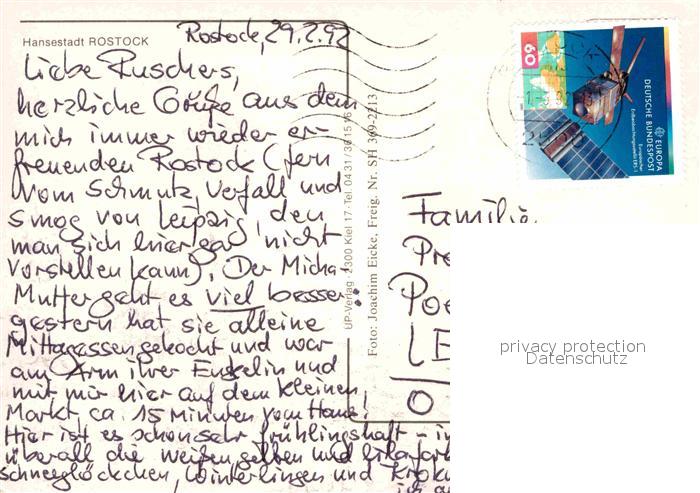 Hansestadt ROSTOCK
Rostock, 29.2.92
Liebe Puschers,
herzliche Grüße aus dem
mich immer wieder er-
freuenden Rostock (fern
vom Schmutz, Verfall und
Smog von Leipzig, den
man sich hier gar nicht
vorstellen kann). Der Micha-
Mutter geht es viel besser:
gestern hat sie alleine
Mittagessen gekocht und war
am Arm ihrer Enkelin und
mit mir hier auf dem kleinen
Markt ca. 15 Minuten vom Haus!
Hier ist es schon sehr frühlingshaft - in
überall die weißen, gelben und lilafarb
Schneeglöckchen, Winterlingen und Kroku
UP-Verlag · 2300 Kiel 17 · Tel. 0431/3615
Foto: Joachim Eicke, Freig. Nr. SH 369-2713
60
EUROPA
DEUTSCHE BUNDESPOST
Europäischer
Erdbeobachtungssatellit ERS-1
Familie
Pr
Poe
LE
O
privacy protection
Datenschutz